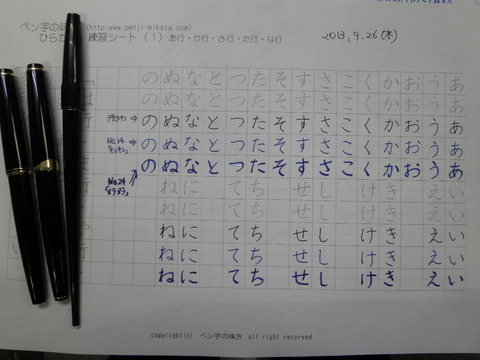 ペン字の味 (http:www.penji-mikata.com)
ひらが 練習シート (1) あ行・か行・さ行・た行・な行
2013, 9.26 (木)
の ぬ な と つ た そ す さ こ く か お う あ
の ぬ な と つ た そ す さ こ く か お う あ
⇒ の ぬ な と つ た そ す さ こ く か お う あ
No.14 ⇒ の ぬ な と つ た そ す さ こ く か お う あ
の ぬ な と つ た そ す さ こ く か お う あ
No.24
ね に て ち せ し け き え い
ね に て ち せ し け き え い
ね に て ち せ し け き え い
ね に て ち せ し け き え い
ね に て ち せ し け き え い
copyright(c) ペン字の味方 all right reserved